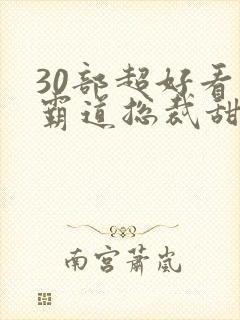 30部超好看
霸道总裁甜
南宫萧岚